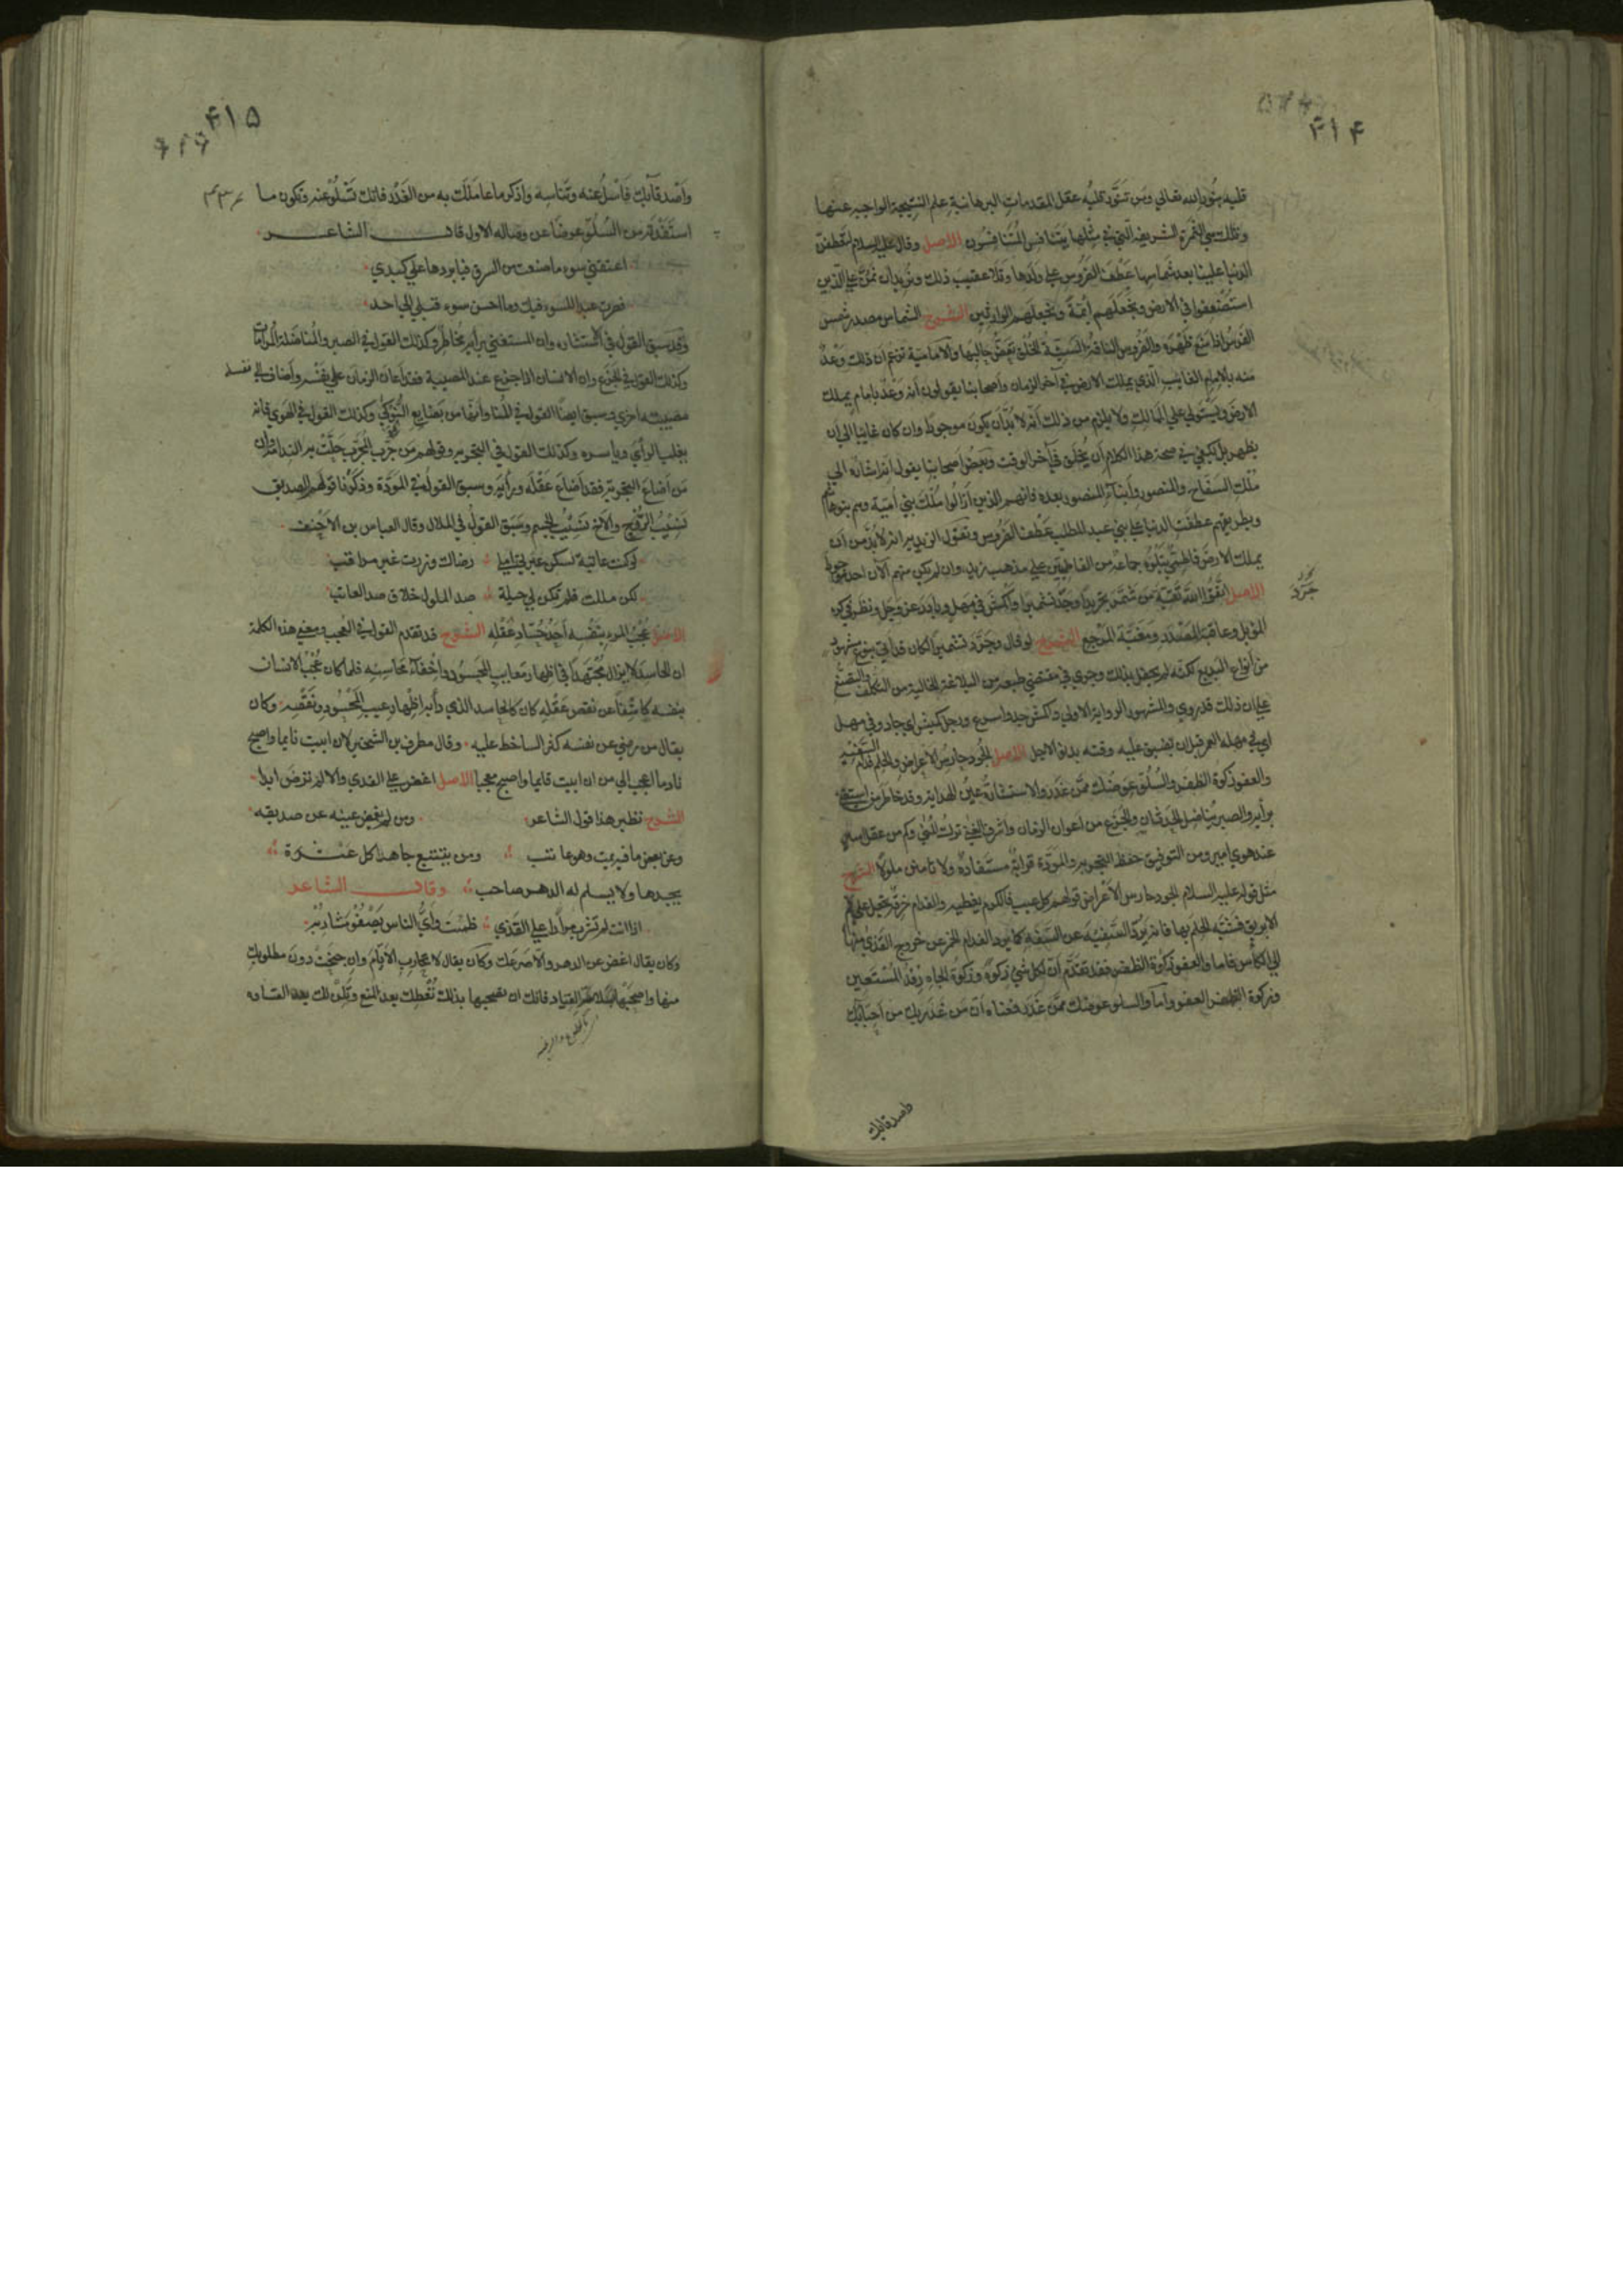 ۴۱۴
قلبه بنور الله تعالى ومن تنور قلبه عقل المقدمات البرهانية علم النتيجة الواجبة عنها
وتلك هي الثمرة الشريفة التي في مثلها يتنافس المتنافسون الاصل وقال عليه السلام لتعطفن
الدنيا علينا بعد شماسها عطف الضروس على ولدها وتلا عقيب ذلك ونريد أن نمن على الذين
استضعفوا في الارض ونجعلهم أئمة ونجعلهم الوارثين الشرح الشماس مصدر شمس
الفرس اذا منع ظهره والضروس الناقة السيئة الخلق تعض حالبها والامامية تزعم أن ذلك وعد
منه بالامام الغايب الذي يملك الارض في آخر الزمان وأصحابنا يقولون أنه وعد بامام يملك
الارض ويستولي على الممالك ولا يلزم من ذلك أنه لا بد أن يكون موجودا وان كان غايبا الى أن
يظهر بل يكفي في صحة هذا الكلام أن يخلق في آخر الوقت وبعض أصحابنا يقول انه اشارة الى
ملك السفاح والمنصور وأبناء المنصور بعده فانهم الذين أزالوا ملك بني أمية وهم بنو هاشم
وبطريقهم عطفت الدنيا على بني عبد المطلب عطف الضروس وتقول الزيدية انه لا بد من أن
يملك الارض فاطمي يتلوه جماعة من الفاطميين على مذهب زيد وان لم يكن منهم الآن احد موجودا
الاصل اتقوا الله تقية من شمر تجريدا وجد تشميرا وأكمش في مهل وبادر عن وجل ونظر في كرة
الموئل وعاقبة المصدر ومغبة المرجع الشرح لو قال وجرد تشميرا لكان قد أتى بنوع مشهور
من أنواع البديع لكنه لم يحفل بذلك وجرى في مقتضى طبعه من البلاغة الخالية من التكلف والتصنع
على ان ذلك قد روي والمشهور الرواية الاولى وأكمش جد واسرع ورجل كميش اي جاد وفي مهل
اي في مهلة العمر قبل ان يضيق عليه وقته بدنو الاجل الاصل الجود حارس الاعراض والحلم فدام السفيه
والعفو زكوة الظفر والسلو عوضك ممن غدر والاستشارة عين الهداية وقد خاطر من استغنى
برأيه والصبر يناضل الحدثان والجزع من اعوان الزمان واشرف الغنى ترك المنى وكم من عقل اسير
عند هوى امير ومن التوفيق حفظ التجربة والمودة قرابة مستفادة ولا تأمنن ملولا الشرح
مثل قوله عليه السلام الجود حارس الاعراض قولهم كل عيب فالكرم يغطيه والفدام خرقة تجعل على فم
الابريق فشبه الحلم بها فانه يرد السفيه عن السفه كما يرد الفدام الخمر عن خروج القذى منها
الى الكاس فاما والعفو زكوة الظفر فقد تقدم أن لكل شيء زكوة وزكوة الجاه رفد المستعين
وزكوة الظفر العفو وأما والسلو عوضك ممن غدر فمعناه أن من غدر بك من أحبابك
واصدقائك
۴۱۵
وأصدقائك فاسل عنه وتناسه واذكر ما عاملك به من الغدر فانك تسلو عنه وتكون ما
استفدته من السلو عوضا عن وصاله الاول قال الشاعر
اعتقني سوء ما صنعت من الرق فيا بردها على كبدي
فصرت عبدا للسوء فيك وما احسن سوء قبلي الى احد
وقد سبق القول في الاستشارة وان المستغني برأيه مخاطر وكذلك القول في الصبر والمناضلة
وكذلك القول في الجزع وان الانسان اذا جزع عند المصيبة فقد أعان الزمان على نفسه وأضاف الى نفسه
مصيبة اخرى وسبق ايضا القول في المنا وانها من بضايع النوكى وكذلك القول في الهوى فانه
يغلب الرأي ويأسره وكذلك القول في التجربة وقولهم من جرب المجرب حلت به الندامة وان
من أضاع التجربة فقد أضاع عقله ورأيه وسبق القول في المودة وذكرنا قولهم الصديق
نسيب الروح والاخ نسيب الجسم وسبق القول في الملال وقال العباس بن الاحنف
لو كنت عاتبة لسكن عبرتي املي رضاك وزرت غير مراقب
لكن مللت فلم تكن لي حيلة صد الملول خلاف صد العاتب
الاصل عجب المرء بنفسه أحد حساد عقله الشرح قد تقدم القول في العجب ومعنى هذه الكلمة
ان الحاسد لا يزال مجتهدا في اظهار معايب المحسود واخفاء محاسنه فلما كان عجب الانسان
بنفسه كاشفا عن نقص عقله كان كالحاسد الذي دأبه اظهار عيب المحسود ونقصه وكان
يقال من رضي عن نفسه كثر الساخط عليه وقال مطرف بن الشخير لان ابيت نايما واصبح
نادما احب الي من ان ابيت قايما واصبح معجبا الاصل اغض على القذى والا لم ترض ابدا
الشرح نظير هذا قول الشاعر ومن لم يغمض عينه عن صديقه
وعن بعض ما فيه يمت وهو عاتب ومن يتتبع جاهدا كل عثرة
يجدها ولا يسلم له الدهر صاحب وقال الشاعر
اذا انت لم تشرب مرارا على القذى ظمئت وأي الناس تصفو مشاربه
وكان يقال اغض عن الدهر والا صرعك وكان يقال لا تحارب الايام وان جنحت دون مطلوبك
منها واصحبها بسلاسة القياد فانك ان تصحبها بذلك تعطك بعد المنع وتلن لك بعد القساوة